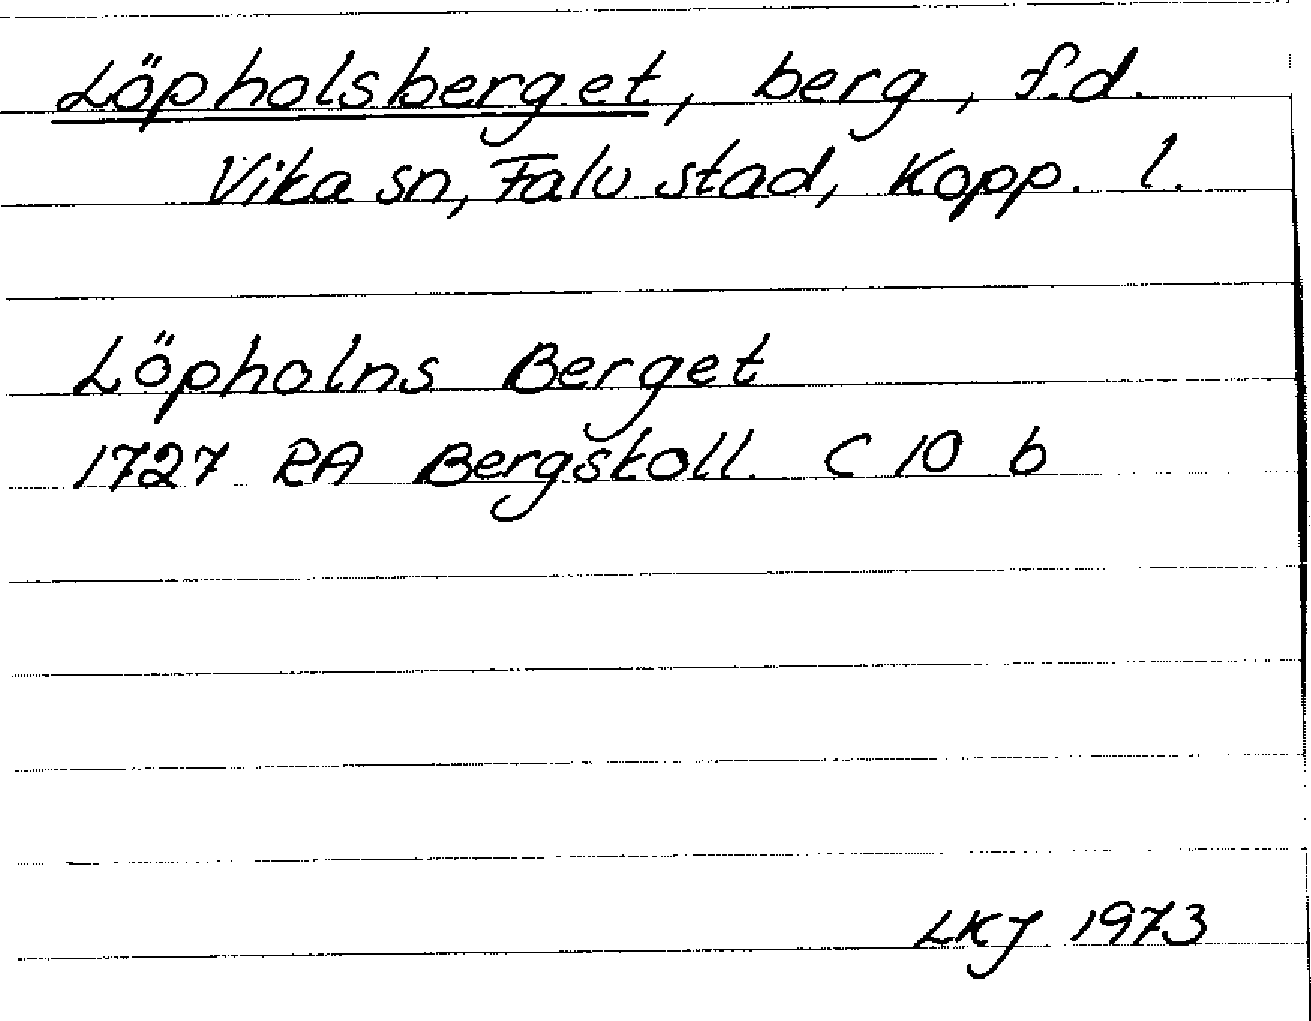 Löpholsberget, berg, f.d.
Vika sn, Falu stad, Kopp. l.
Löpholns Berget
1727 RA Bergskoll. C 10 b
LKJ 1973